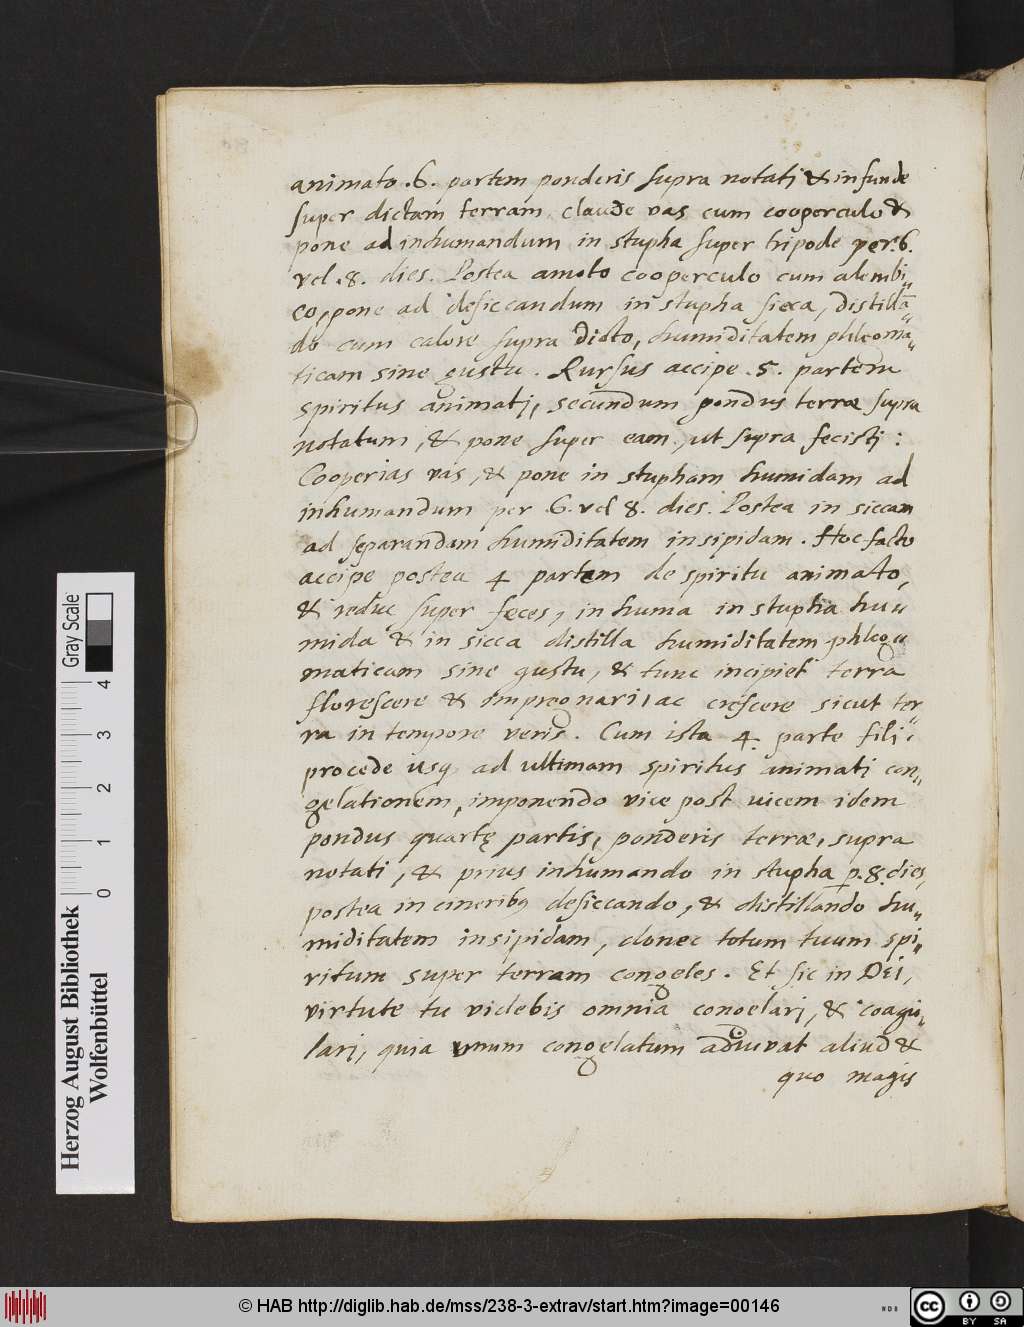 animato .6. partem ponderis supra notati & infunde
super dictam terram, claude vas cum cooperculo &
pone ad inhumandum in stupha super tripode per .6.
vel .8. dies. Postea amoto cooperculo cum alembi„
co, pone ad desiccandum in stupha sicca, distillā„
do cum calore supra dicto, humiditatem phlegma„
ticam sine gustu. Rursus accipe .5. partem
spiritus animati, secundum pondus terræ supra
notatum, & pone super eam, ut supra fecisti:
Cooperias vas, & pone in stupham humidam ad
inhumandum per 6. vel 8. dies. Postea in siccam
ad separandam humiditatem insipidam. Hoc facto
accipe postea 4 partem de spiritu animato,
& reduc super feces, inhuma in stupha hu„
mida & in sicca distilla humiditatem phleg„
maticam sine gustu, & tunc incipiet terra
florescere & impregnari, ac crescere sicut ter„
ra in tempore veris. Cum ista 4. parte fili,
procede usq ad ultimam spiritus animati con„
gelationem, imponendo vice post vicem idem
pondus quartę partis, ponderis terræ, supra
notati, & prius inhumando in stupha p. 8. dies,
postea in cineribq desiccando, & distillando hu„
miditatem insipidam, donec totum tuum spi„
ritum super terram congeles. Et sic in Dei,
virtute tu videbis omnia congelari, & coagu„
lari, quia unum congelatum adiuvat aliud &
quo magis
Herzog August Bibliothek
Wolfenbüttel
Gray Scale
0 1 2 3 4
© HAB http://diglib.hab.de/mss/238-3-extrav/start.htm?image=00146
cc BY SA